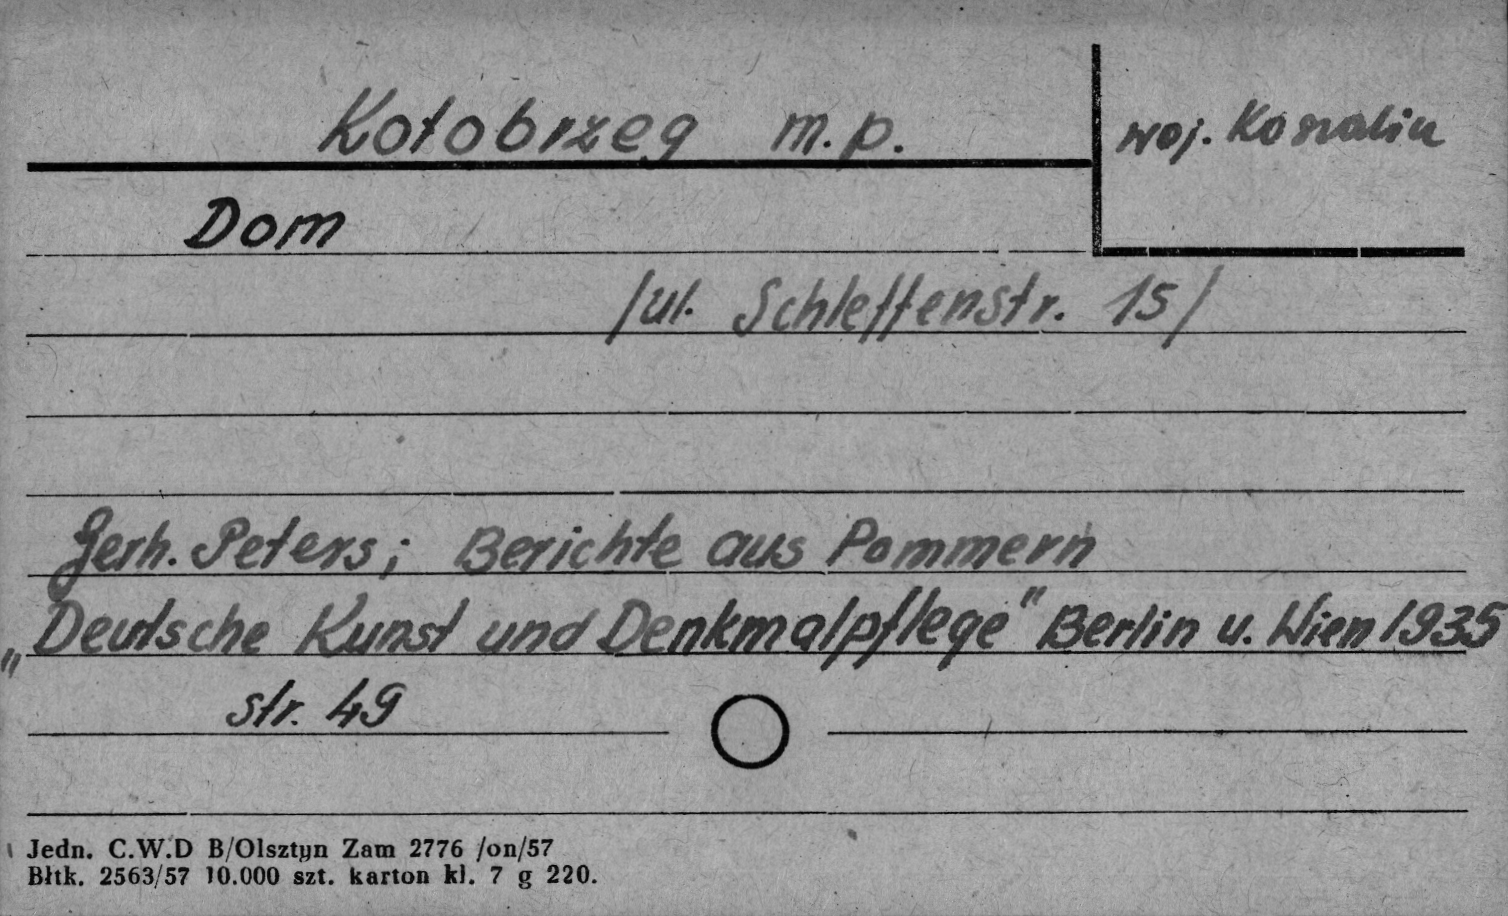 Kołobrzeg m.p.
woj. Koszalin
Dom
/ul. Schleffenstr. 15/
Gerh. Peters; Berichte aus Pommern
„Deutsche Kunst und Denkmalpflege" Berlin u. Wien 1935
str. 49
Jedn. C.W.D B/Olsztyn Zam 2776 /on/57
Błtk. 2563/57 10.000 szt. karton kl. 7 g 220.